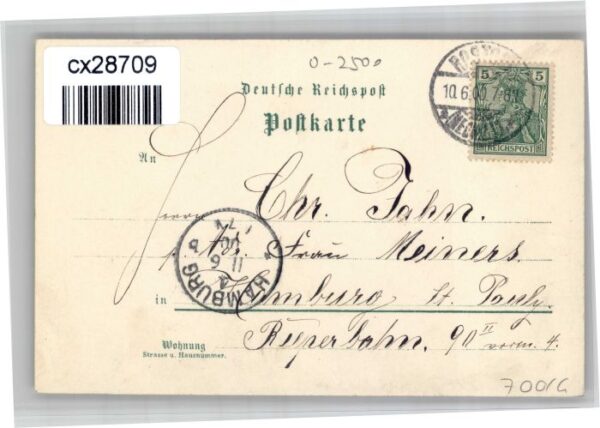 cx28709
0-2500
Deutsche Reichspost
Postkarte
10.6.00.7-8N.
5 5
REICHSPOST
An
Herrn Chr. Jahn.
Frau Meiners
HAMBURG
11.6
00
in Hamburg St. Pauly.
Reeperbahn. 90 II vorm. 4.
Wohnung
Strasse u. Hausnummer.
7001G